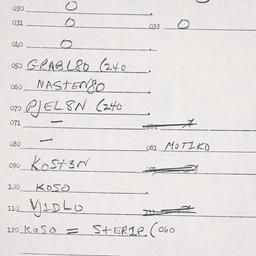 030 O
031 O 032 O
040 O
050 GRABL80 (240
060 NASTEN80
070 PJEL8N (240
071 —
080 — 081 MOTIKO
090 KOST3N
100 KOSO
110 VJ1DLO
120 KOSO = STER1P (060